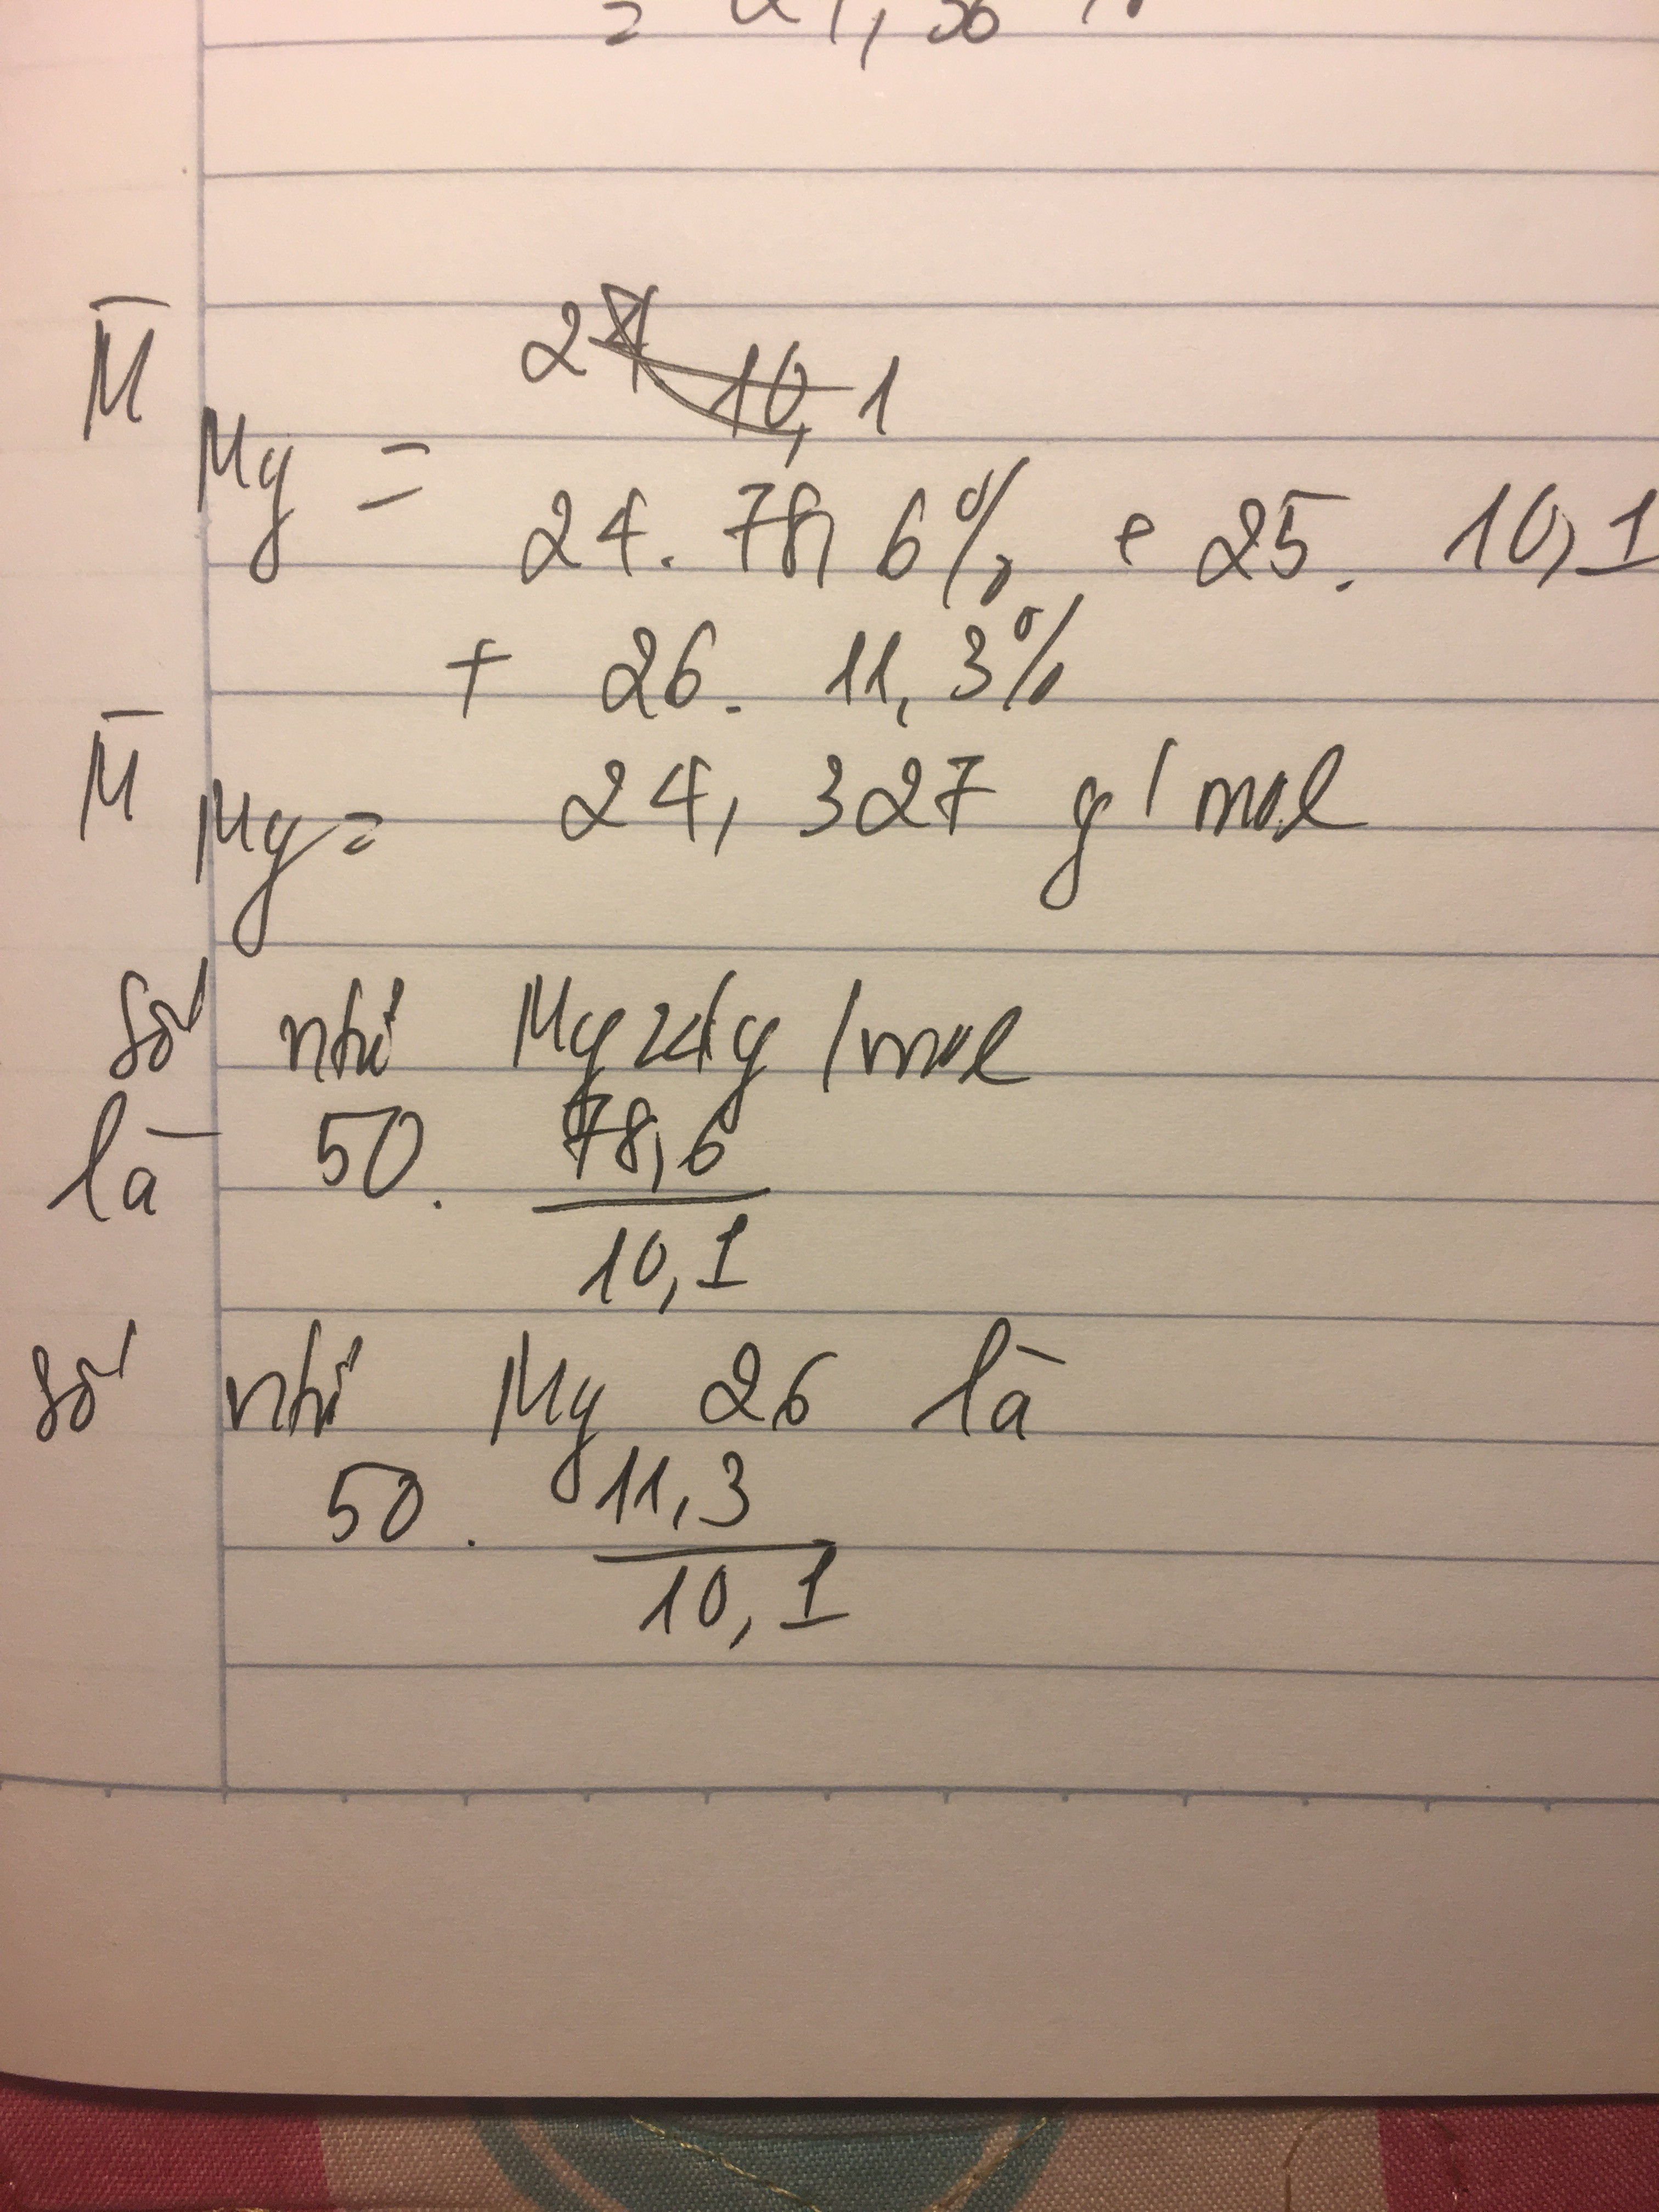 M̄ Mg = 24 10,1
24. 78,6% + 25. 10,1
+ 26. 11,3%
M̄ Mg = 24,327 g/mol
số ntử Mg 24 g/mol
là 50. 78,6/10,1
số ntử Mg 26 là
50. 11,3/10,1